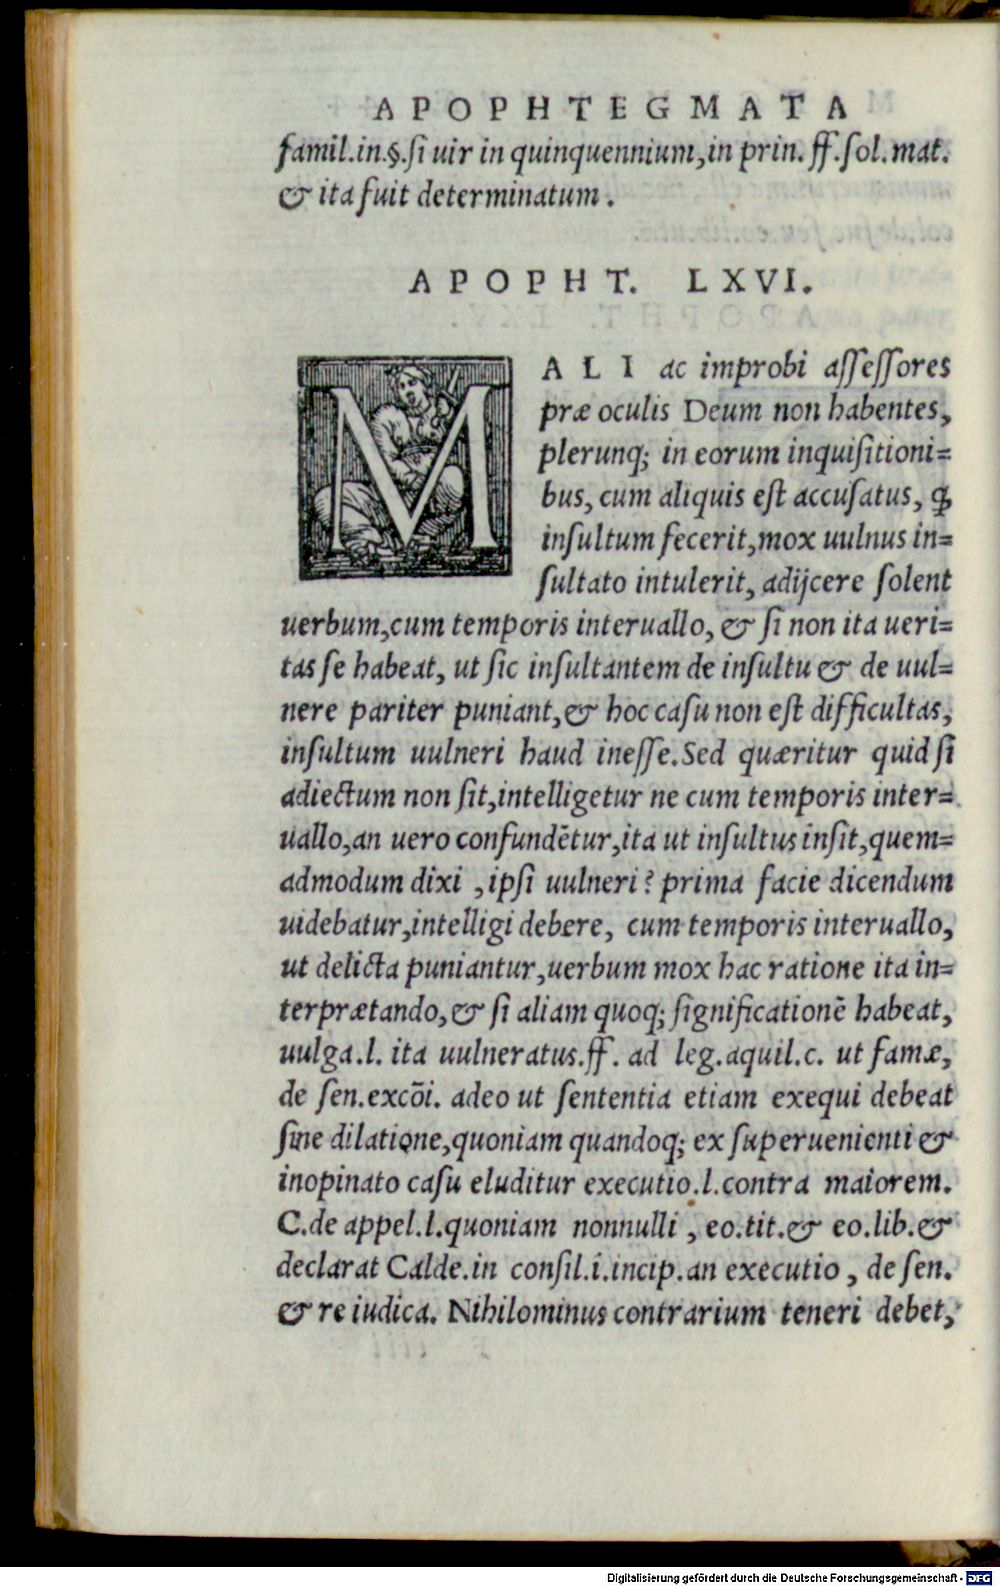 APOPHTEGMATA
famil.in.§.ſi uir in quinquennium,in prin. ff.ſol.mat.
& ita fuit determinatum.
APOPHT. LXVI.
MALI ac improbi aſſeſſores
præ oculis Deum non habentes,
plerunq; in eorum inquiſitioni=
bus, cum aliquis eſt accuſatus, ꝙ
inſultum fecerit,mox uulnus in=
ſultato intulerit, adijcere ſolent
uerbum,cum temporis interuallo, & ſi non ita ueri=
tas ſe habeat, ut ſic inſultantem de inſultu & de uul=
nere pariter puniant,& hoc caſu non eſt difficultas,
inſultum uulneri haud ineſſe.Sed quæritur quid ſi
adiectum non ſit,intelligetur ne cum temporis inter=
uallo,an uero confundētur,ita ut inſultus inſit,quem=
admodum dixi ,ipſi uulneri? prima facie dicendum
uidebatur,intelligi debere, cum temporis interuallo,
ut delicta puniantur,uerbum mox hac ratione ita in=
terprætando,& ſi aliam quoq; ſignificationē habeat,
uulga.l. ita uulneratus.ff. ad leg.aquil.c. ut famæ,
de ſen.excōi. adeo ut ſententia etiam exequi debeat
ſine dilatione,quoniam quandoq; ex ſuperuenienti &
inopinato caſu eluditur executio.l.contra maiorem.
C.de appel.l.quoniam nonnulli , eo.tit.& eo.lib.&
declarat Calde.in conſil.i.incip.an executio , de ſen.
& re iudica. Nihilominus contrarium teneri debet,
Digitalisierung gefördert durch die Deutsche Forschungsgemeinschaft - DFG